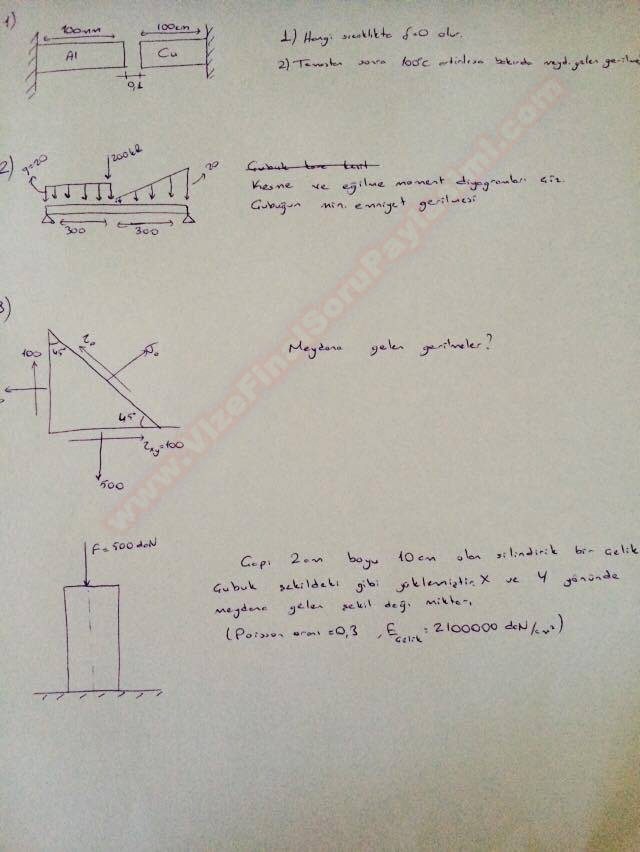 1)
100mm
100cm
Al
Cu
0,1
1) Hangi sıcaklıkta δ=0 olur.
2) Temastan sonra 100°C artırılırsa bakırda meyd. gelen gerilme
2)
q=20
200
20
300
300
Çubuk
Kesme ve eğilme moment diyagramları çiz.
Çubuğun min. emniyet gerilmesi
3)
100
45
τo
σo
45
τxy=100
500
Meydana gelen gerilmeler?
F=500 daN
Çapı 2cm boyu 10cm olan silindirik bir çelik
Çubuk şekildeki gibi yüklemiştir. X ve Y yönünde
meydana gelen şekil değ. miktarı,
(Poisson oranı=0,3 , Eçelik=2100000 daN/cm²)
www.VizeFinalSoruPaylasimi.com